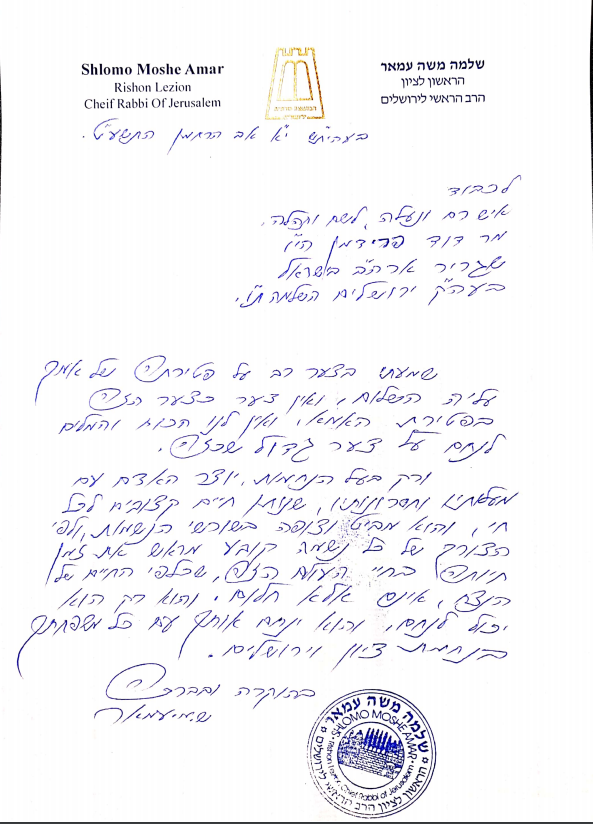 Shlomo Moshe Amar
Rishon Lezion
Cheif Rabbi Of Jerusalem
שלמה משה עמאר
הראשון לציון
הרב הראשי לירושלים
בעהי"ת ש"ק י"א אב הרחמן התשע"ט.
לכבוד
איש רם ונעלה, לשם ותהלה,
מר דוד פרידמן הי"ו
שגריר ארה"ב בישראל
בעה"ק ירושלים השלמה ת"ו.
שמעתי בצער רב על פטירתה של אמך
עליה השלום, ואין צער כצער הזה
בפטירת האמא, ואין לנו הכוח והמלים
לנחם על צער גדול שכזה.
ורק בעל הנחמות, יוצר האדם עם
מעלותיו וחסרונותיו, שנותן חיים קצובים לכל
חי, והוא מביט וצופה בשורשי הנשמות, ולפי
הצורך של כל נשמה קובע מראש את זמן
חיותה בחיי העולם הזה, שכלפי החיים של
הנצח, אינם אלא חלום. והוא רק הוא
יכול לנחם, והוא ינחם אותך עם כל משפחתך
בנחמת ציון וירושלים.
בהוקרה ובברכה
ש.מ. עמאר
שלמה משה עמאר
SHLOMO MOSHE AMAR
Rishon Lezion, Chief Rabbi of Jerusalem
הראשון לציון הרב הראשי לירושלים